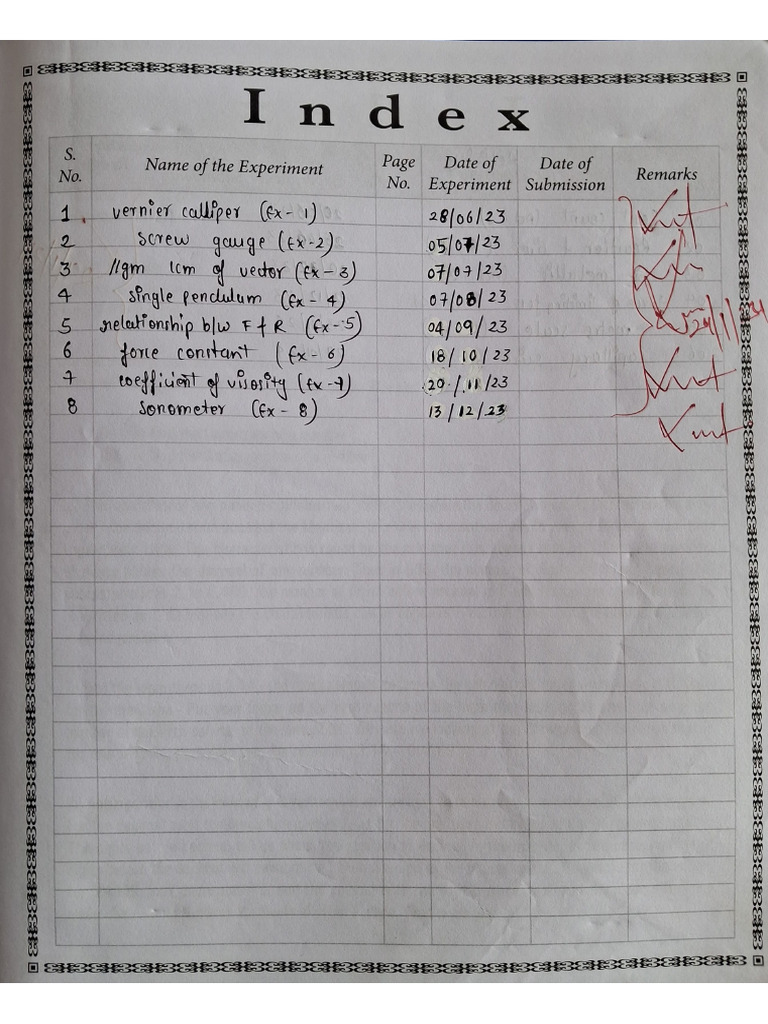 Index
S. No. Name of the Experiment Page No. Date of Experiment Date of Submission Remarks
1 vernier calliper (Ex-1) 28/06/23
2 screw gauge (Ex-2) 05/07/23
3 //gm lcm of vector (Ex-3) 07/07/23
4 single pendulum (Ex-4) 07/08/23
5 relationship b/w F & R (Ex-5) 04/09/23
6 force constant (Ex-6) 18/10/23
7 coefficient of visosity (Ex-7) 29/11/23
8 sonometer (Ex-8) 13/12/23